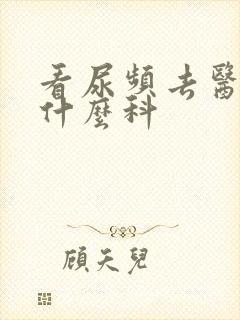 看尿頻去醫
什麼科
顧天兒